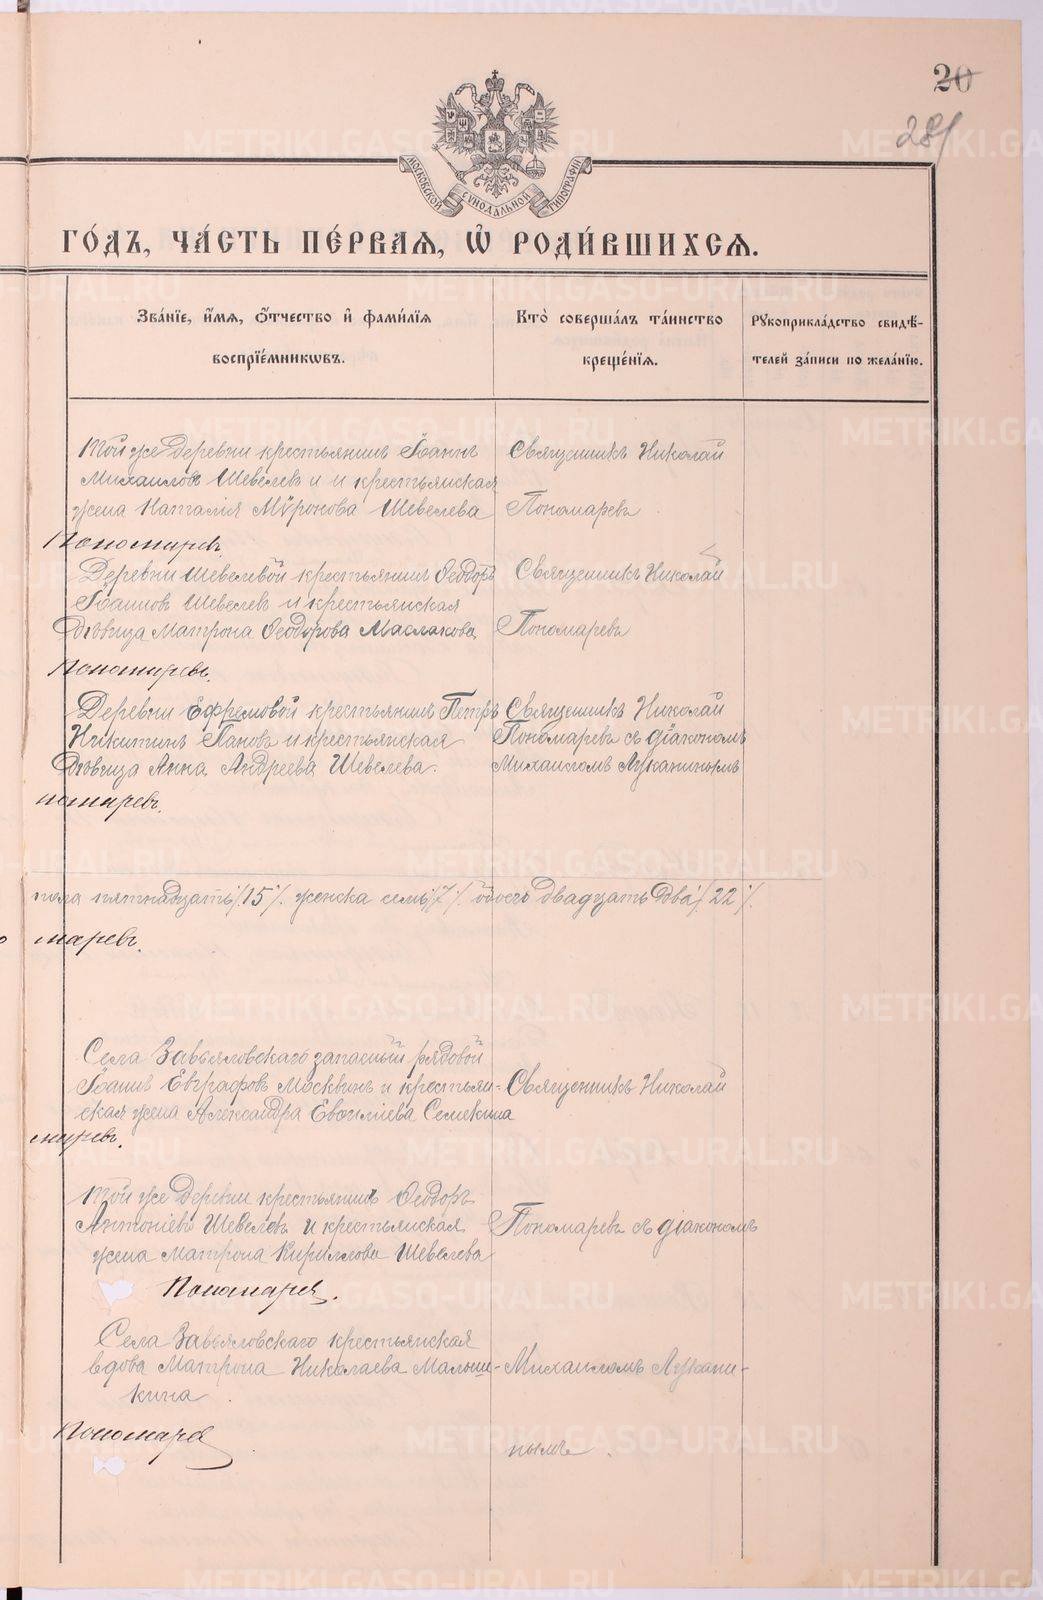 20
281
МОСКОВСКОЙ СУНОДАЛЬНОЙ ТИПОГРАФІИ
ГО́ДЪ, ЧА́СТЬ ПЕ́РВАѦ, Ѡ҆ РОДИ́ВШИХСѦ.
Зва́нїе, и҆́мѧ, ѻ҆́тчество и҆ фами́лїѧ
воспрїе́мникѡвъ.
Кто̀ соверша́лъ та́инство
креще́нїѧ.
Рꙋкоприкла́дство свидѣ́-
телей за́писи по жела́нїю.
Той же Деревни крестьянинъ Іоаннъ
Михаиловъ Шевелевъ и крестьянская
жена Наталія Мѵронова Шевелева
Священникъ Николай
Пономаревъ
Пономаревъ.
Деревни Шевелевой крестьянинъ Ѳеодоръ
Іоанновъ Шевелевъ и крестьянская
Дѣвица Матрона Ѳеодорова Маслакова
Священникъ Николай
Пономаревъ
Пономаревъ.
Деревни Ефремовой крестьянинъ Петръ
Никитинъ Пановъ и крестьянская
Дѣвица Анна Андреева Шевелева.
Священникъ Николай
Пономаревъ съ діакономъ
Михаиломъ Луканинымъ
номаревъ.
пола пятнадцать /15/. женска семь /7/. обоего двадцать два /22/.
о маревъ.
Села Завьяловскаго запасный рядовой
Іоаннъ Евграфовъ Москвинъ и крестьян-
ская жена Александра Евѳиміева Семекина
Священникъ Николай
маревъ.
Той же Деревни крестьянинъ Ѳеодоръ
Антоніевъ Шевелевъ и крестьянская
жена Матрона Кириллова Шевелева
Пономаревъ съ діакономъ
Пономарев.
Села Завьяловскаго крестьянская
вдова Матрона Николаева Малыш-
кина
Михаиломъ Лукани-
нымъ.
Пономарев
METRIKI.GASO-URAL.RU